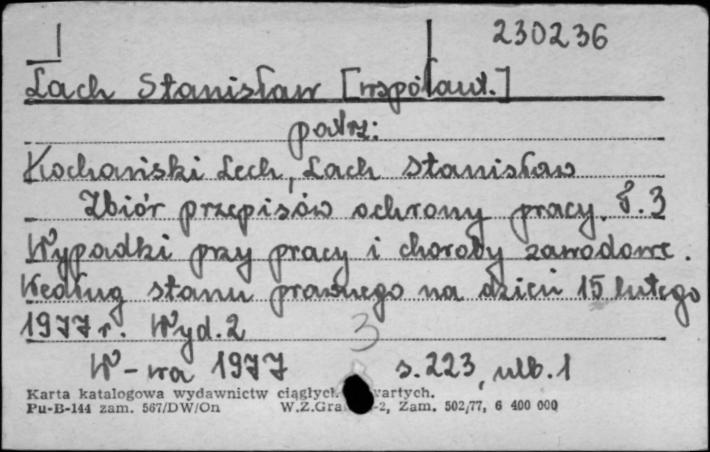 230236
Lach Stanisław [współaut.]
patrz:
Kochański Lech, Lach Stanisław
Zbiór przepisów ochrony pracy. T. 3
Wypadki przy pracy i choroby zawodowe.
Według stanu prawnego na dzień 15 lutego
1977 r. Wyd. 2
3
W-wa 1977 s. 223, nlb. 1
Karta katalogowa wydawnictw ciągłych
Pu-B-144 zam. 567/DW/On W.Z.Gra -2, Zam. 502/77, 6 400 000